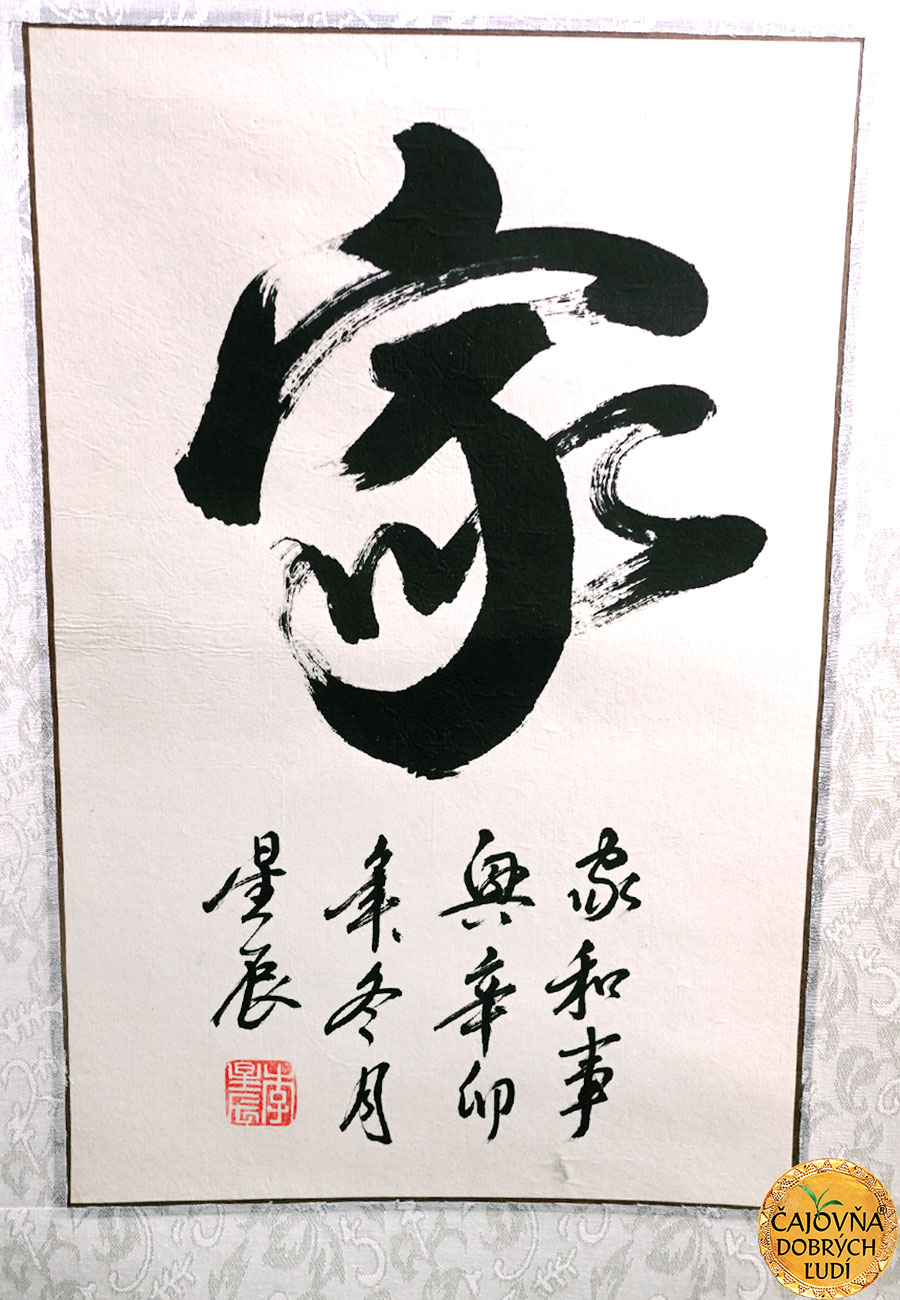 家
家和事
興辛卯
年冬月
星辰
李星辰
ČAJOVŇA®
DOBRÝCH
ĽUDÍ